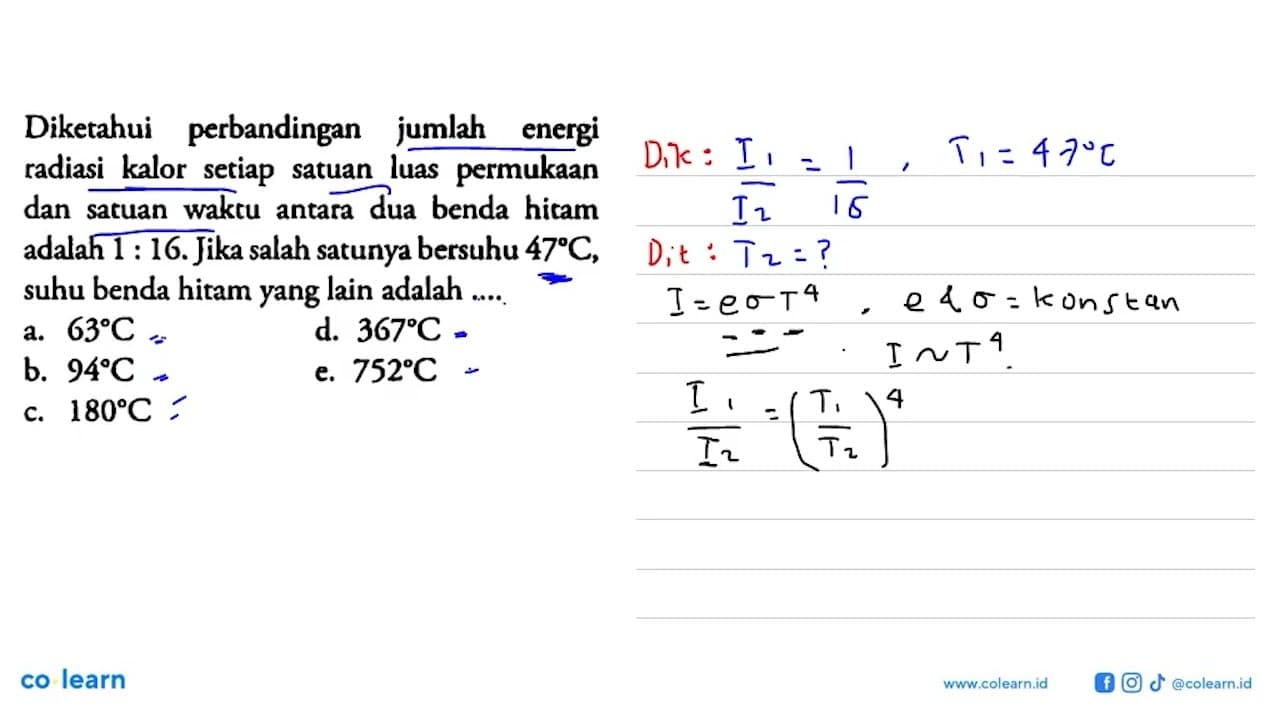 Diketahui perbandingan jumlah energi
radiasi kalor setiap satuan luas permukaan
dan satuan waktu antara dua benda hitam
adalah 1 : 16. Jika salah satunya bersuhu 47°C,
suhu benda hitam yang lain adalah ....
a. 63°C
d. 367°C
b. 94°C
e. 752°C
c. 180°C
Dik : I1/I2 = 1/16 , T1 = 47°C
Dit : T2 = ?
I = eσT⁴ , e & σ = konstan
I ~ T⁴.
I1/I2 = (T1/T2)⁴
co learn
www.colearn.id
@colearn.id